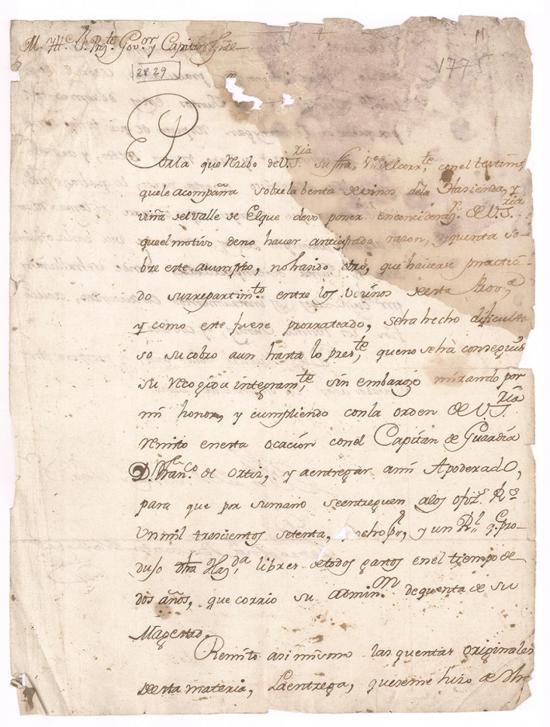 M. Iltr. S. Presdte. Govor. y Capitan Gral.
28 29
1775
En la que recibo de V.Sria. su fha, del corrte. con el testimo.
que le acompaña sobre la benta de vinos de la Hasienda, y
viña del Valle de Elque devo poner en considerasn. de V.Sria.
que el motivo de no haver anticipado razon, y quenta so-
bre este asumpto, no ha sido otro, que haverse practica-
do su repartimto. entre los Vecinos de esta Prova.
y como este fuese prorrateado, se ha hecho dificulto-
so su cobro aun hasta lo preste, que no se ha conseguido
su recogida integramte, sin embargo mirando por
mi honor, y cumpliendo con la orden de V.Sria
remito en esta ocacion con el Capitan de Guardia
Dn. Franco. de Ortiz, y a entregar a mi Apoderado,
para que pr su mano se entreguen a los ofizs. Rs.
Un mil trescientos setenta, y ocho ps, y un Rl. q. pro-
dujo dha Hasda. libres de todos gastos en el tiempo de
dos años, que corrio su adminon. de quenta de su
Magestad.
Remito asi mismo las quentas originales
de esta materia, La entrega, que se me hizo de dha